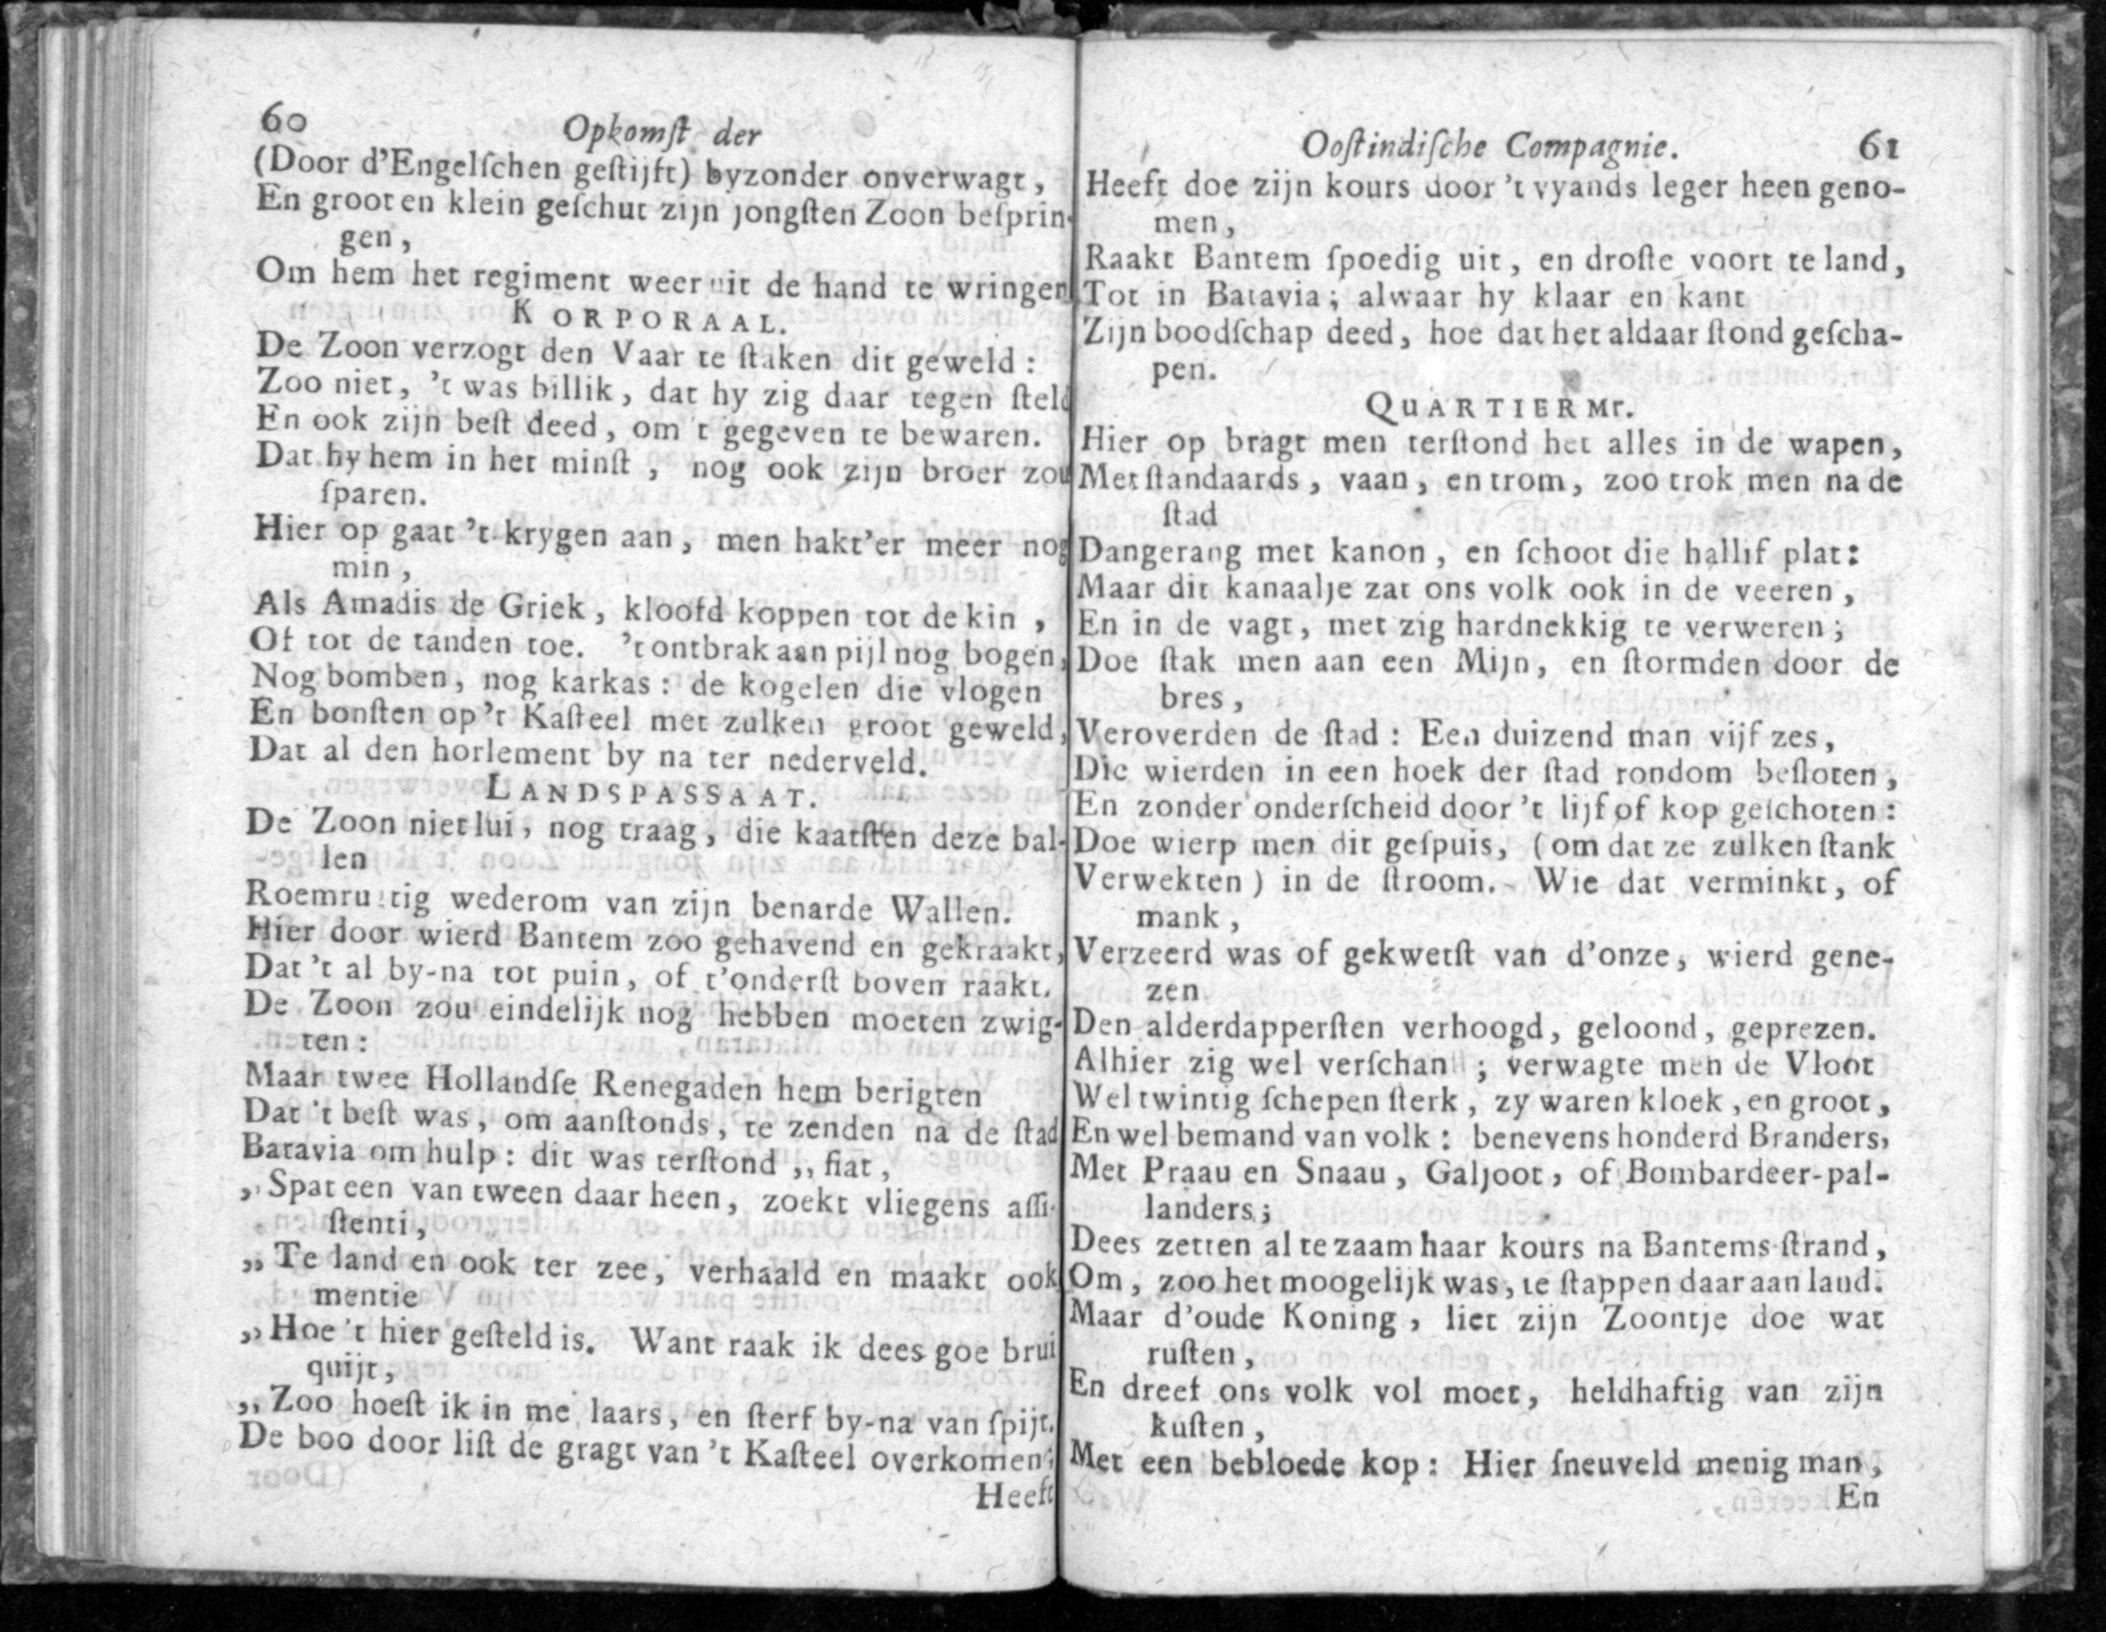 60
Opkomſt der
(Door d'Engelſchen geſtijft) byzonder onverwagt,
En groot en klein geſchut zijn jongſten Zoon beſprin-
gen,
Om hem het regiment weer uit de hand te wringen
KORPORAAL.
De Zoon verzogt den Vaar te ſtaken dit geweld:
Zoo niet, 't was billik, dat hy zig daar tegen ſteld
En ook zijn beſt deed, om 't gegeven te bewaren.
Dat hy hem in het minſt, nog ook zijn broer zou
ſparen.
Hier op gaat 't krygen aan, men hakt'er meer nog
min,
Als Amadis de Griek, kloofd koppen tot de kin,
Of tot de tanden toe. 't ontbrak aan pijl nog bogen,
Nog bomben, nog karkas: de kogelen die vlogen
En bonſten op 't Kaſteel met zulken groot geweld,
Dat al den horlement by na ter nederveld.
LANDSPASSAAT.
De Zoon niet lui, nog traag, die kaatſten deze bal-
len
Roemrugtig wederom van zijn benarde Wallen.
Hier door wierd Bantem zoo gehavend en gekraakt,
Dat 't al by-na tot puin, of t'onderſt boven raakt.
De Zoon zou eindelijk nog hebben moeten zwig-
ten:
Maar twee Hollandſe Renegaden hem berigten
Dat 't beſt was, om aanſtonds, te zenden na de ſtad
Batavia om hulp: dit was terſtond ,, fiat,
,, Spat een van tween daar heen, zoekt vliegens aſſi-
ſtenti,
,, Te land en ook ter zee, verhaald en maakt ook
mentie
,, Hoe 't hier geſteld is. Want raak ik dees goe brui
quijt,
,, Zoo hoeſt ik in me laars, en ſterf by-na van ſpijt.
De boo door liſt de gragt van 't Kaſteel overkomen;
Heeft
Ooſtindiſche Compagnie. 61
Heeft doe zijn kours door 't vyands leger heen geno-
men,
Raakt Bantem ſpoedig uit, en droſte voort te land,
Tot in Batavia; alwaar hy klaar en kant
Zijn boodſchap deed, hoe dat het aldaar ſtond geſcha-
pen.
QUARTIERMr.
Hier op bragt men terſtond het alles in de wapen,
Met ſtandaards, vaan, en trom, zoo trok men na de
ſtad
Dangerang met kanon, en ſchoot die hallif plat:
Maar dit kanaalje zat ons volk ook in de veeren,
En in de vagt, met zig hardnekkig te verweren;
Doe ſtak men aan een Mijn, en ſtormden door de
bres,
Veroverden de ſtad: Een duizend man vijf zes,
Die wierden in een hoek der ſtad rondom beſloten,
En zonder onderſcheid door 't lijf of kop geſchoten:
Doe wierp men dit geſpuis, (om dat ze zulken ſtank
Verwekten) in de ſtroom. Wie dat verminkt, of
mank,
Verzeerd was of gekwetſt van d'onze, wierd gene-
zen
Den alderdapperſten verhoogd, geloond, geprezen.
Alhier zig wel verſchanſt; verwagte men de Vloot
Wel twintig ſchepen ſterk, zy waren kloek, en groot,
En wel bemand van volk: benevens honderd Branders,
Met Praau en Snaau, Galjoot, of Bombardeer-pal-
landers;
Dees zetten al te zaam haar kours na Bantems ſtrand,
Om, zoo het moogelijk was, te ſtappen daar aan land.
Maar d'oude Koning, liet zijn Zoontje doe wat
ruſten,
En dreef ons volk vol moet, heldhaftig van zijn
kuſten,
Met een bebloede kop: Hier ſneuveld menig man,
En